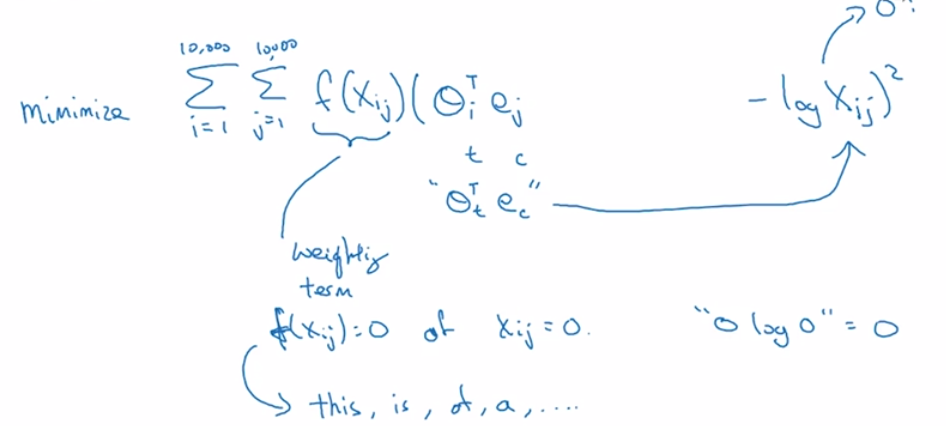 minimize 10,000 Σ i=1 10,000 Σ j=1 f(Xij)(θi^T ej - log Xij)^2 → 0
t c
"θt^T ec"
weighting
term
f(Xij)=0 if Xij=0. "0 log 0" = 0
this, is, of, a, ....